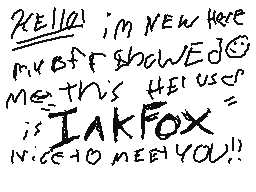 HEllo! im NEW HerE
my BFF SHOWED
me this HEr user
is InkFox
Nice to mEEt YOU!!